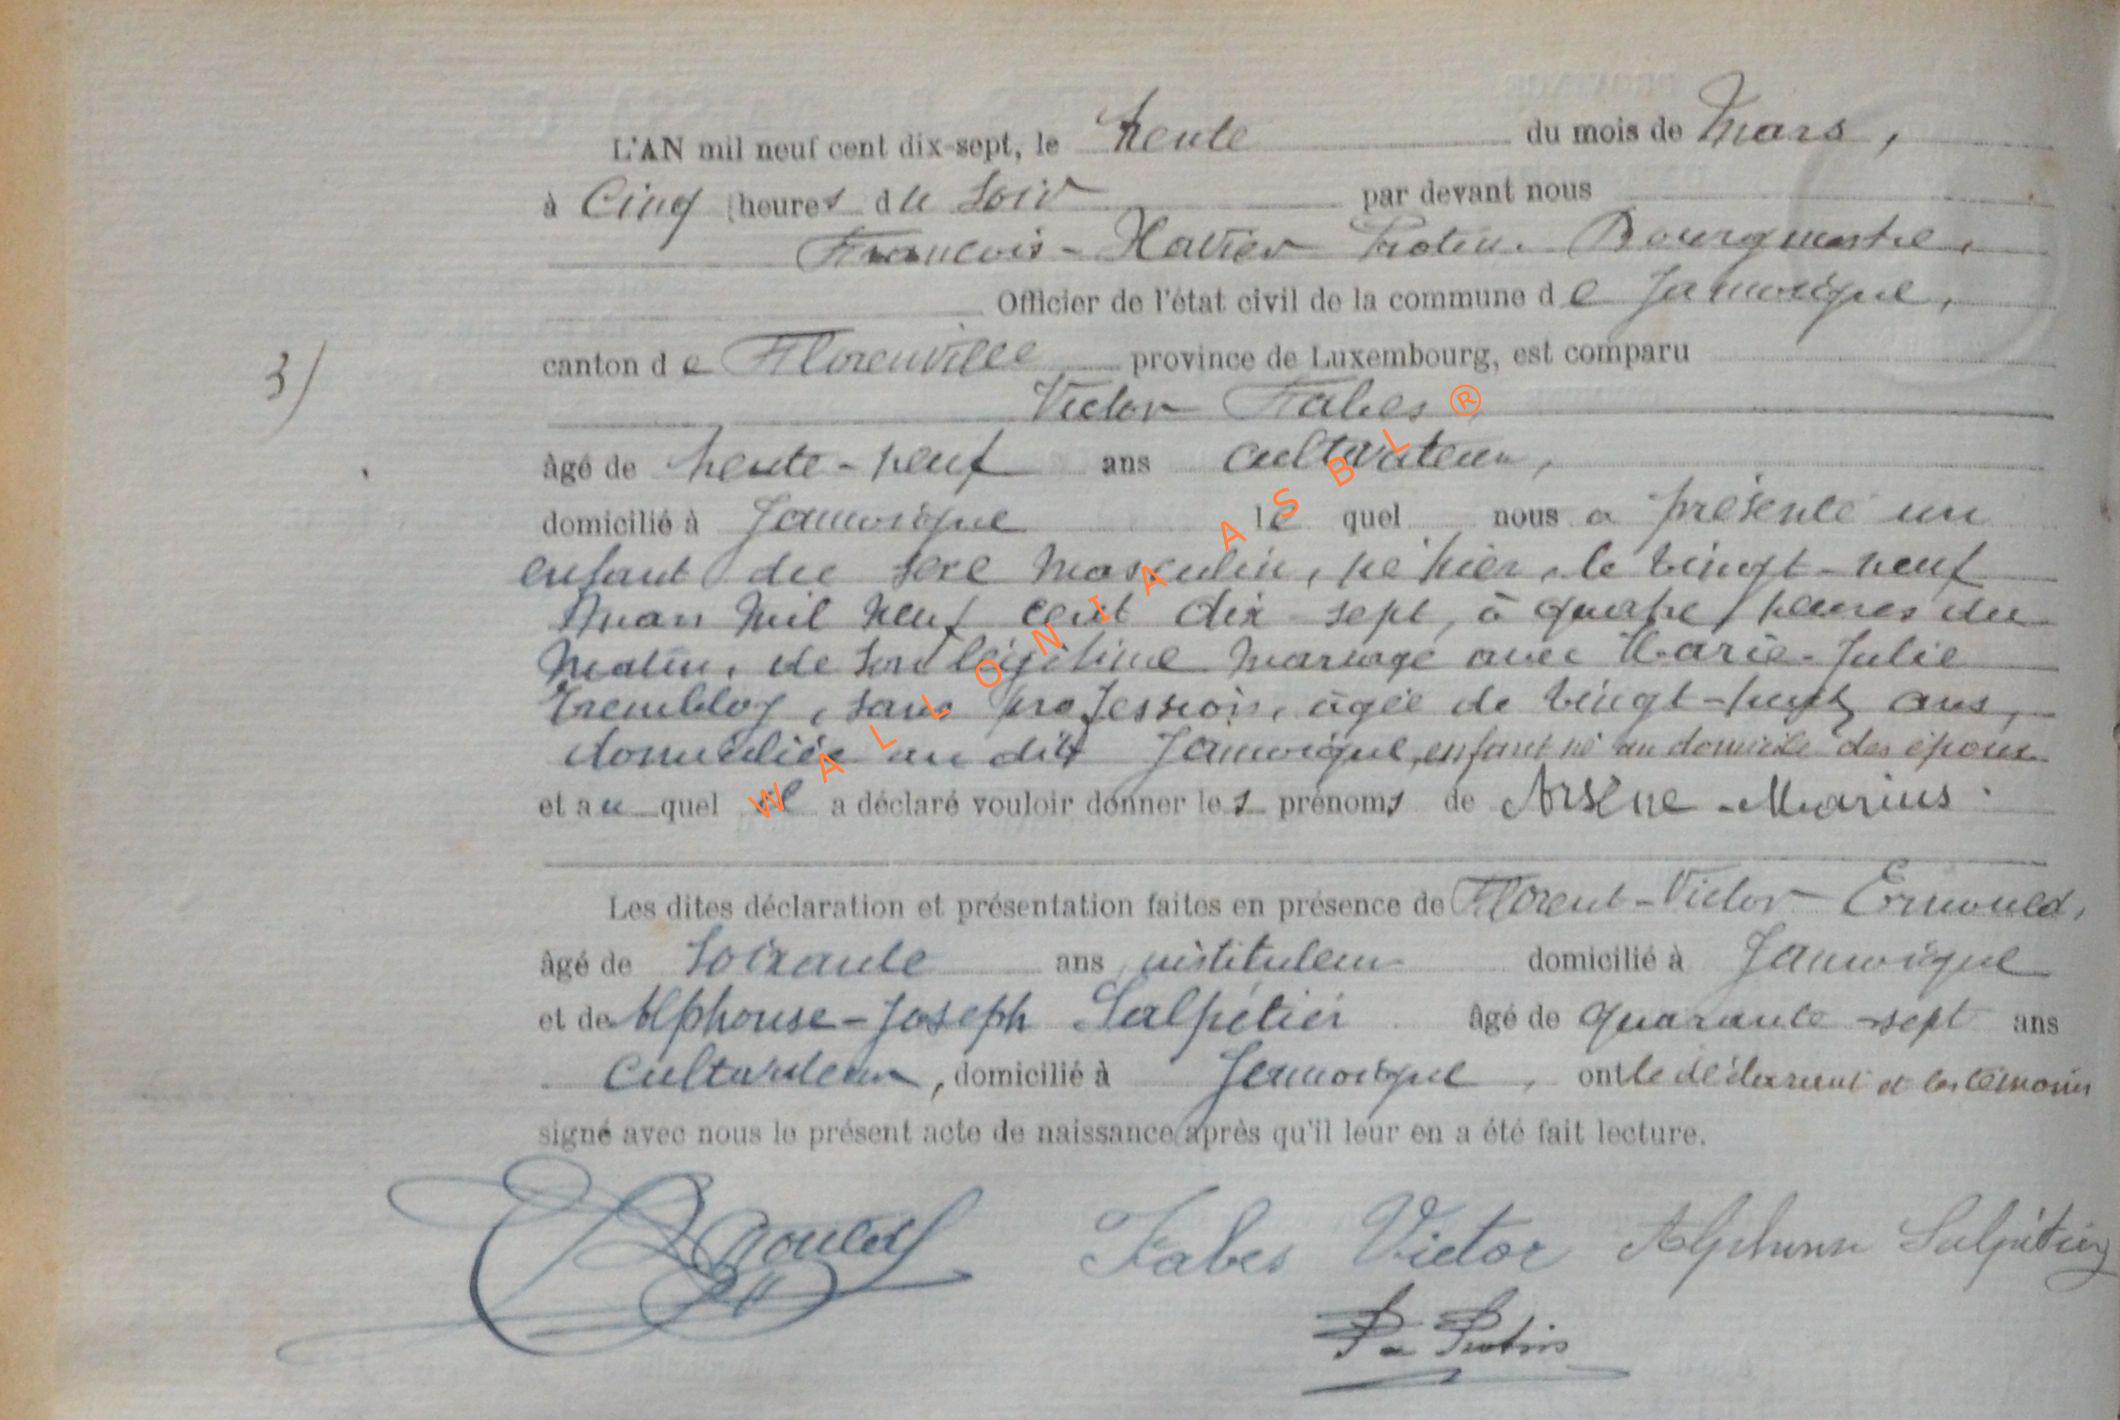 L'AN mil neuf cent dix-sept, le trente du mois de Mars,
à Cinq heures du Soir par devant nous
François-Xavier Protin. Bourgmestre,
Officier de l'état civil de la commune de Jamoigne,
3)
canton de Florenville province de Luxembourg, est comparu
Victor Fabes
âgé de trente-neuf ans cultivateur,
domicilié à Jamoigne lequel nous a présenté un
enfant du sexe masculin, né hier, le vingt-neuf
Mars mil neuf cent dix-sept, à quatre heures du
matin, de son légitime mariage avec Marie-Julie
Trembloy, sans profession, âgée de vingt-huit ans,
domiciliée au dit Jamoigne, enfant né au domicile des époux
et auquel il a déclaré vouloir donner les prénoms de Arsène-Marius.
Les dites déclaration et présentation faites en présence de Florent-Victor Ernould,
âgé de Soixante ans instituteur domicilié à Jamoigne
et de Alphonse-Joseph Salpétier âgé de quarante-sept ans
Cultivateur, domicilié à Jamoigne, ont le déclarant et les témoins
signé avec nous le présent acte de naissance après qu'il leur en a été fait lecture.
Fabes Victor Alphonse Salpétier
Protin
WALLONIA ASBL ®